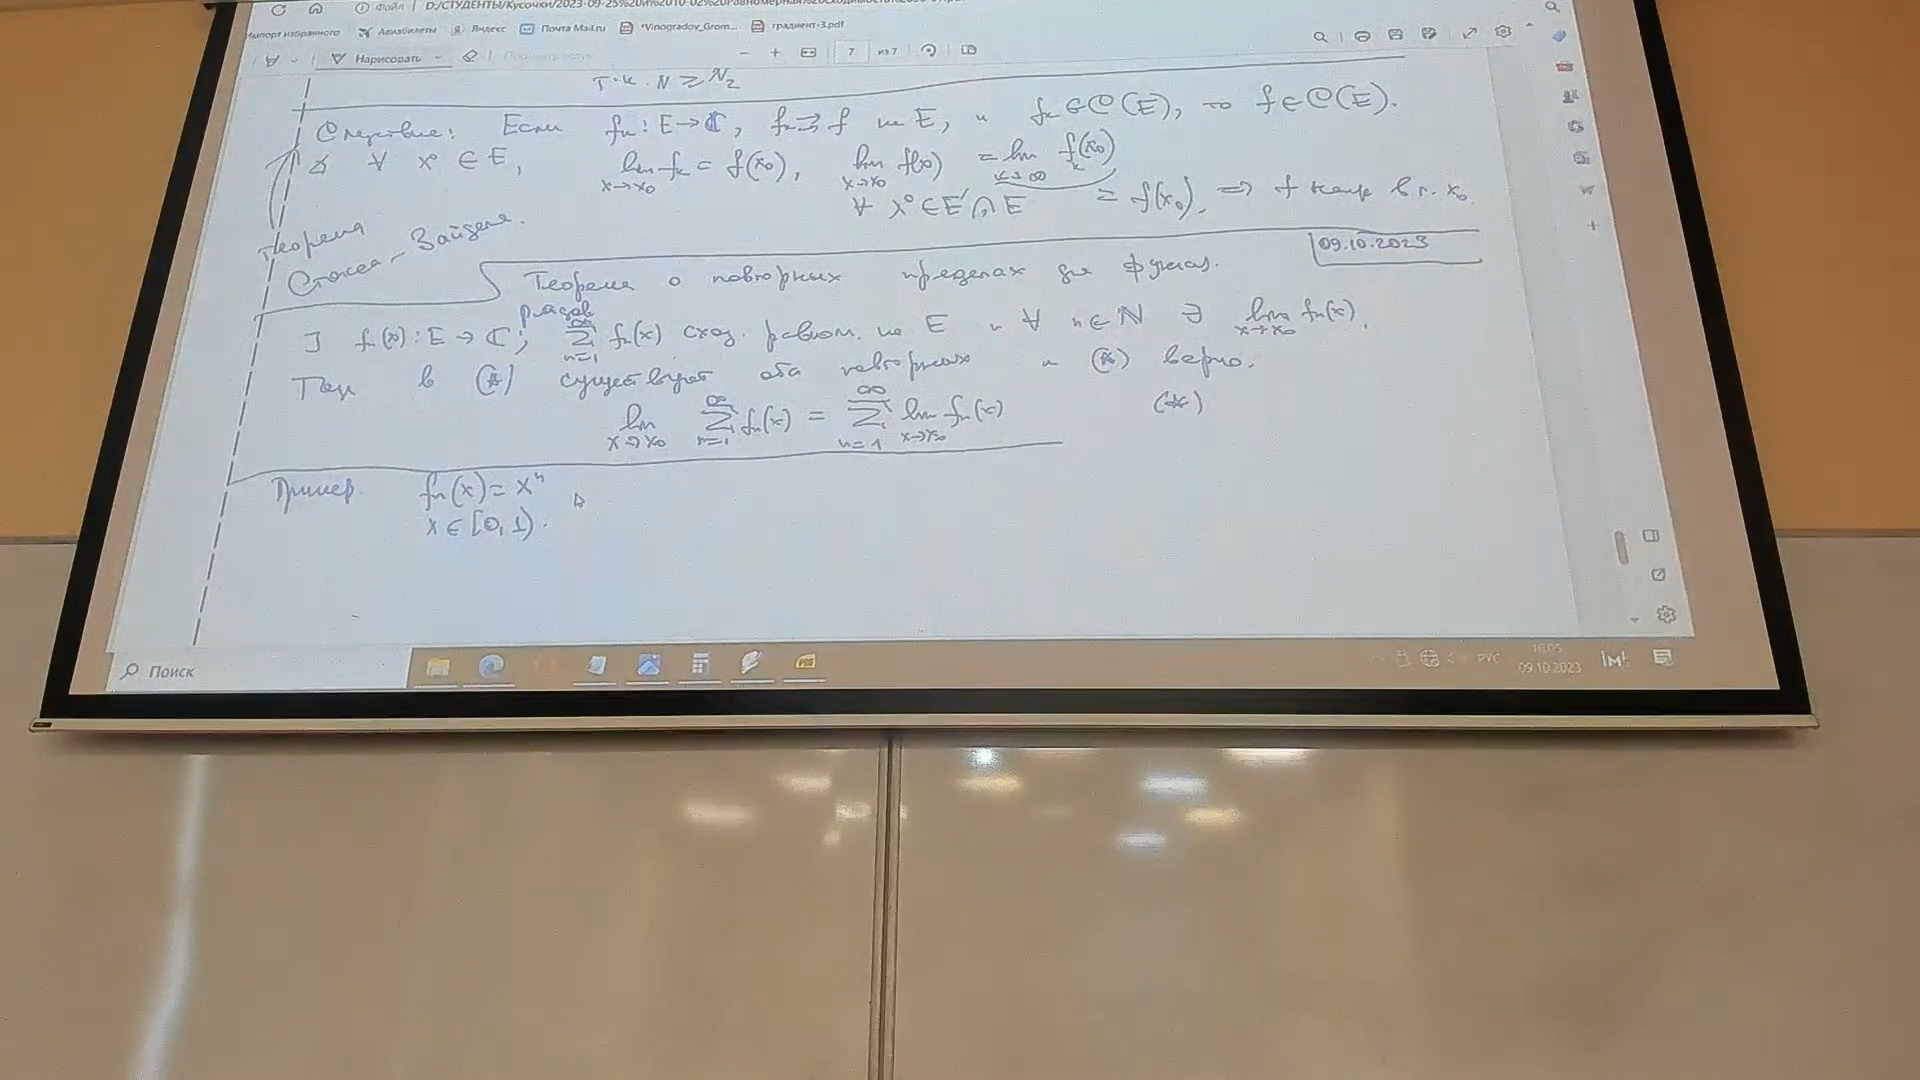 Файл | D:/СТУДЕНТЫ/Кусочки/2023-09-25%20и%2010-02%20Равномерная%20сходимость
Импорт избранного Авиабилеты Яндекс Почта Mail.ru *Vinogradov_Grom... градиент-3.pdf
Нарисовать 7 из 7
т.к. N ≥ N₂
Следствие: Если fₙ : E → ℂ, fₙ ⇉ f на E, и fₙ ∈ C(E), то f ∈ C(E).
∀ x₀ ∈ E, lim_{x→x₀} fₖ = f(x₀), lim_{x→x₀} f(x) = lim_{k→∞} fₖ(x₀)
∀ x₀ ∈ E' ∩ E = f(x₀), ⇒ f непр в т. x₀.
Теорема
Стокса - Зайделя.
09.10.2023
Теорема о повторных пределах для функц.
рядов
] fₙ(x) : E → ℂ; ∑_{n=1}^{∞} fₙ(x) сход. равном. на E и ∀ n ∈ ℕ ∃ lim_{x→x₀} fₙ(x).
Тогда в (*) существуют оба повторных и (*) верно.
lim_{x→x₀} ∑_{n=1}^{∞} fₙ(x) = ∑_{n=1}^{∞} lim_{x→x₀} fₙ(x) (*)
Пример. fₙ(x) = xⁿ
x ∈ [0, 1).
Поиск
РУС
16:05
09.10.2023